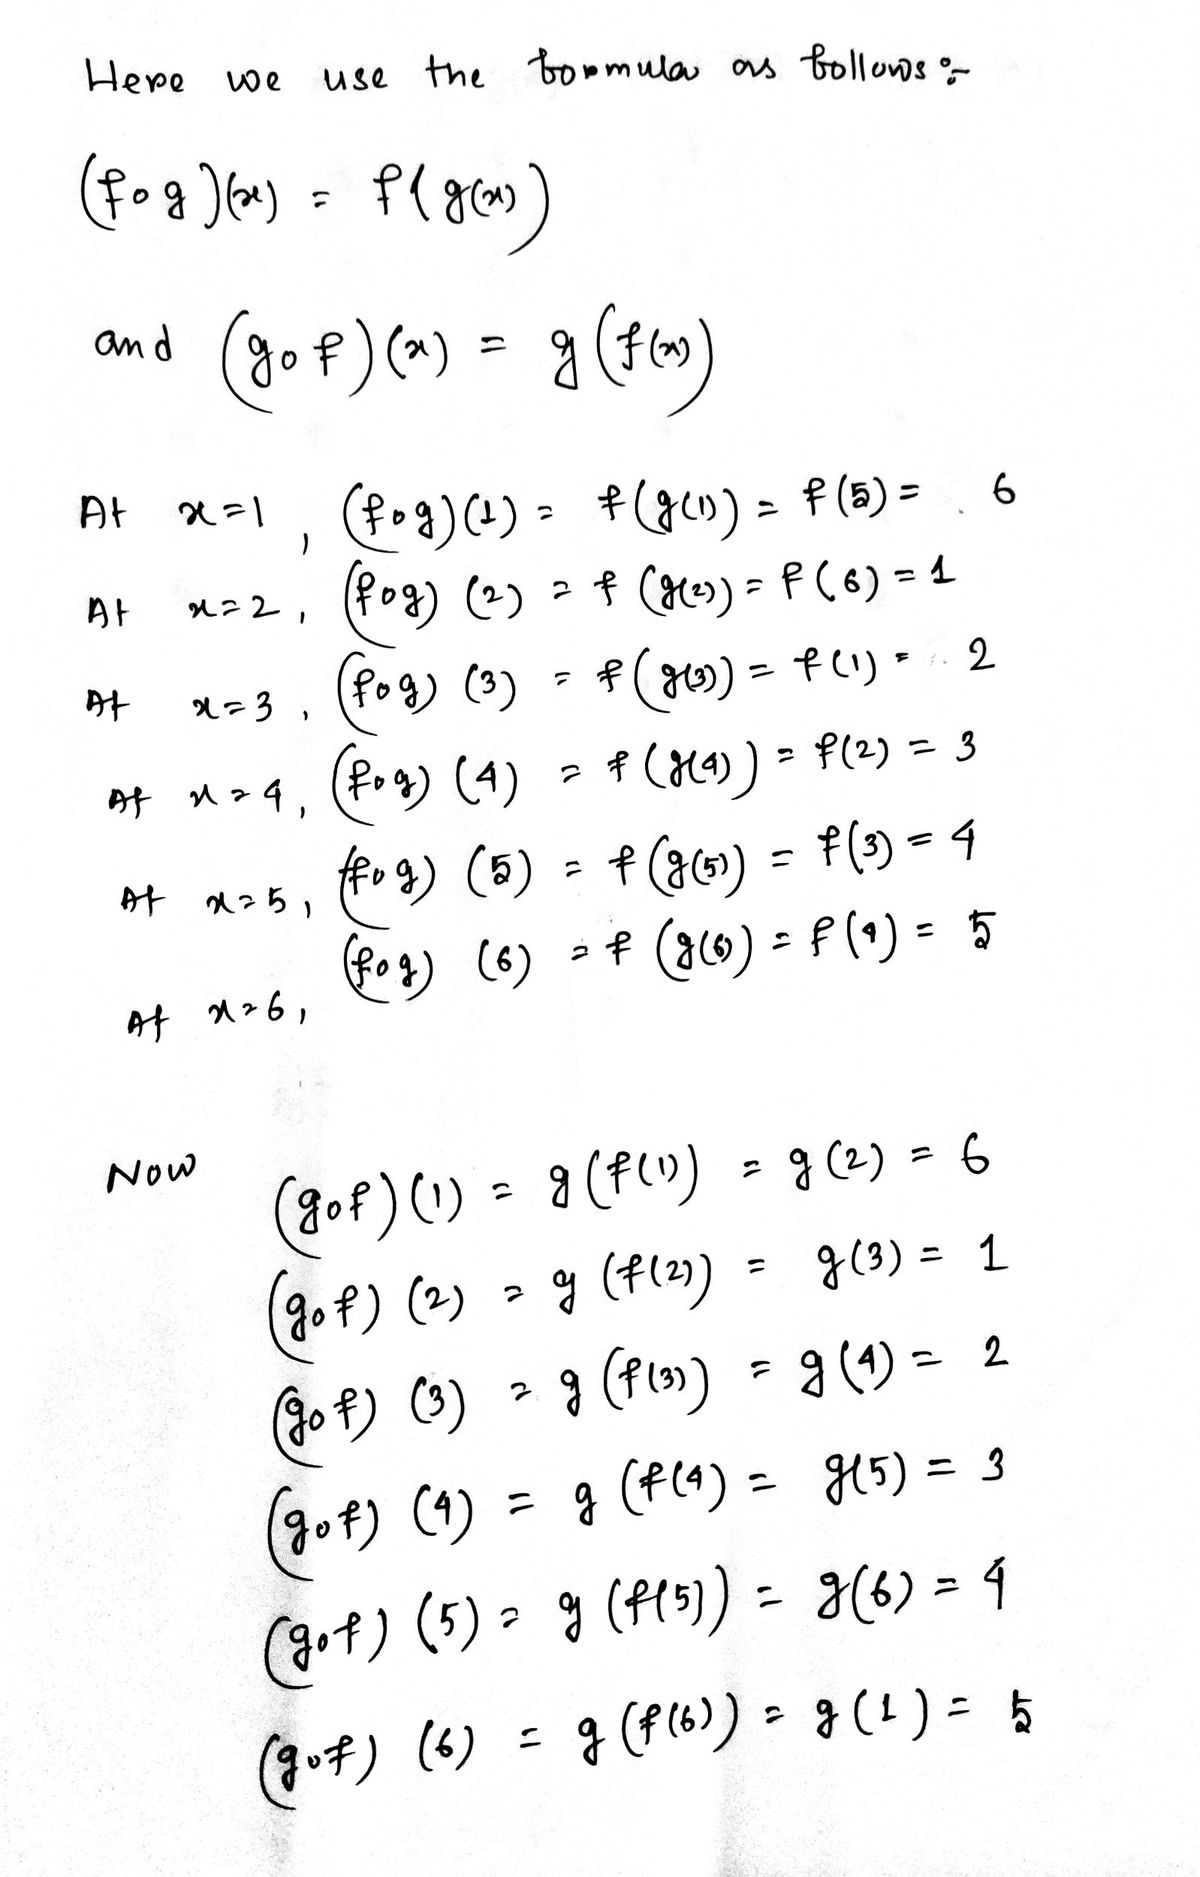 Here we use the formula as follows :-
(fog)(x) = f(g(x))
and (gof)(x) = g(f(x))
At x=1, (fog)(1) = f(g(1)) = f(5) = 6
At x=2, (fog) (2) = f (g(2)) = f(6) = 1
At x=3, (fog) (3) = f(g(3)) = f(1) = 2
At x=4, (fog) (4) = f(g(4)) = f(2) = 3
At x=5, (fog) (5) = f(g(5)) = f(3) = 4
At x=6, (fog) (6) = f (g(6)) = f(4) = 5
Now (gof)(1) = g(f(1)) = g(2) = 6
(gof) (2) = g (f(2)) = g(3) = 1
(gof) (3) = g (f(3)) = g(4) = 2
(gof) (4) = g (f(4) = g(5) = 3
(gof) (5) = g (f(5)) = g(6) = 4
(gof) (6) = g (f(6)) = g(1) = 5